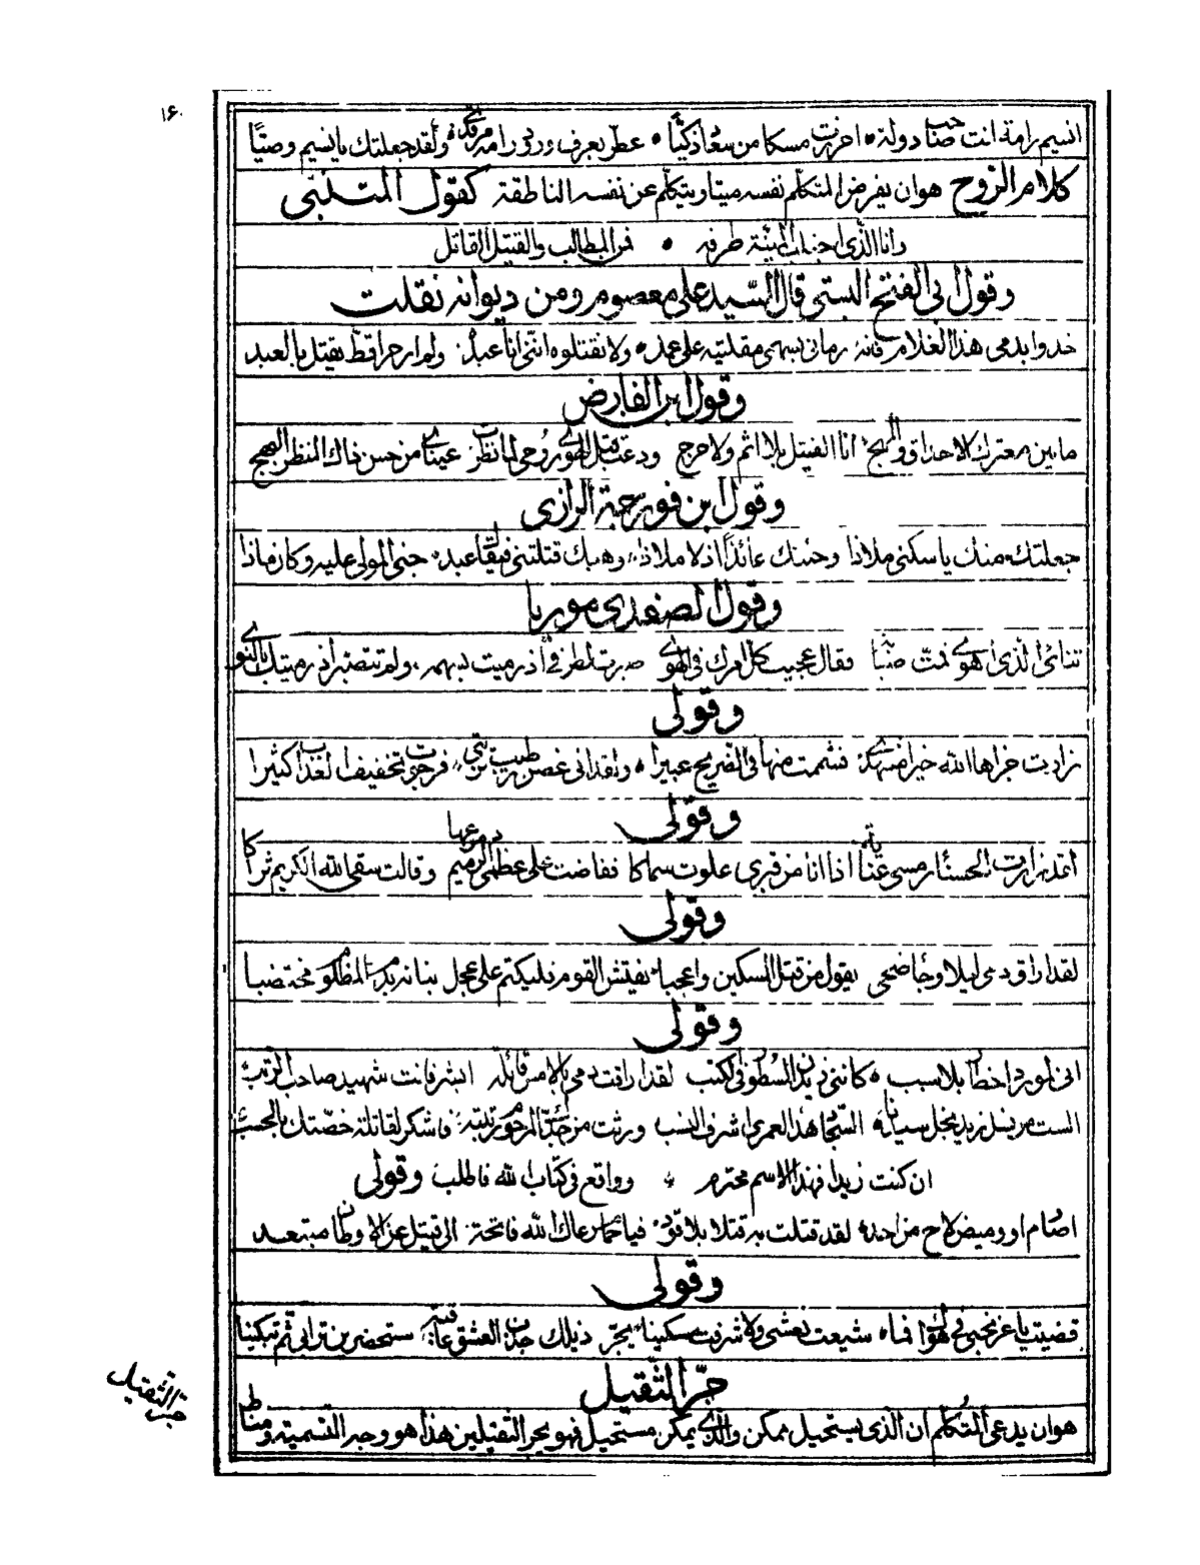 ۱۶۰
انسيم رامة انت صاحب دولة احرزت مسكا من سعاد ذكيا عطر بعرف وردتي رامه مرقدي ولقد جعلتك يا نسيم وصيا
كلام الروح هو ان يفرض المتكلم نفسه ميتا ويتكلم عن نفسه الناطقة كقول المتنبي
وانا الذي اجتلب المنية طرفه فمن المطالب والقتيل القاتل
وقول ابي الفتح البستي قال السيد علي معصوم ومن ديوانه نقلت
خذوا بدمي هذا الغلام فانه رماني بسهمي مقلتيه على عمد ولا تقتلوه انني انا عبده ولم ار حرا قط يقتل بالعبد
وقول ابن الفارض
ما بين معترك الاحداق والمهج انا القتيل بلا اثم ولا حرج ودعت قبل الهوى روحي لما نظرت عيناي من حسن ذاك المنظر البهج
وقول ابن فورجة الرازي
جعلتك منك يا سكني ملاذا وجئتك عائذا اذ لا ملاذا وهبك قتلتني فيقال عبد جنى المولى عليه وكان ماذا
وقول الصفدي موريا
تناءى الذي اهوى فمت صبابة فقال عجيب كل امرك في الهوى صبرت لطرفي اذ رميت بسهمه ولم تتصبر اذ رميتك بالنوى
وقولي
زارت جزاها الله خيرا فشممت منها في الضريح عبيرا ولقد اتى غصن رطيب تربتي فرجوت تخفيف العذاب كثيرا
وقولي
لقد زارت الحسناء رمسي عناية اذا انا من قبري علوت سماكا ففاضت على عظمي الرميم دموعها وقالت سقى الله الكريم ثراكا
وقولي
لقد اراق دمي ليلا وجاء ضحى يقول من قتل المسكين واعجبا يفتش القوم فليكتم على عجل بنانه بدم المظلوم مختضبا
وقولي
اني لمورد اخطار بلا سبب كانني زيد المسطور في الكتب لقد اراقت دمي بالامس قائلة ابشر فانت شهيد صاحب الرتب
الست من نسل زيد نجل سيدنا السجاد هذا لعمري اشرف النسب ورثت من جدك المرحوم رتبته فاشكر لقاتلة خصتك بالحسب
ان كنت زيدا فهذا الاسم محترم وواقع في كتاب الله فاطلب وقولي
اصمام او وميض لاح من احد لقد قتلت به قتلا بلا قود فيا حمام رعاك الله فاتحة الى قتيل عن الاوطان مبتعد
وقولي
قضيت يا عز نحبي في الهوى افما شيعت نعشي ولا شرفت مسكينا يجر ذيلك جذب العشق عانية ستحضرين ترابي ثم تبكينا
جر الثقيل
هو ان يدعي المتكلم ان الذي يستحيل ممكن والذي يمكن مستحيل فهو يجر الثقيلين هذا هو وجه التسمية ومثاله
جر الثقيل